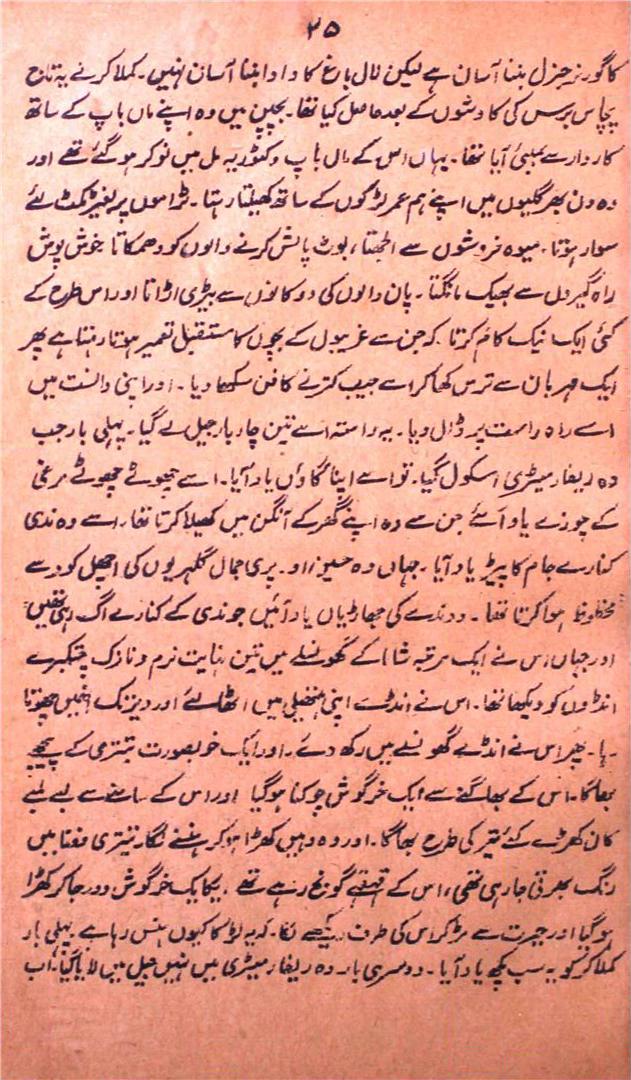 ۲۵
کا گورنر جنرل بننا آسان ہے لیکن لال باغ کا دادا بننا آسان نہیں۔ کملاکر نے یہ تاج
پچاس برس کی کاوشوں کے بعد حاصل کیا تھا۔ بچپن میں وہ اپنے ماں باپ کے ساتھ
کاردار سے بمبئی آیا تھا۔ یہاں اس کے ماں باپ وکٹوریہ مل میں نوکر ہو گئے تھے اور
وہ دن بھر گلیوں میں اپنے ہم عمر لڑکوں کے ساتھ کھیلتا رہتا۔ ٹراموں پر بغیر ٹکٹ لئے
سوار ہوتا، میوہ فروشوں سے الجھتا، بوٹ پالش کرنے والوں کو دھمکاتا خوش پوش
راہ گیروں سے بھیک مانگتا۔ پان والوں کی دوکانوں سے بیڑی اڑاتا اور اس طرح کے
کئی ایک نیک کام کرتا کہ جن سے غریبوں کے بچوں کا مستقبل تعمیر ہوتا رہتا ہے پھر
ایک مہربان نے ترس کھا کر اسے جیب کترنے کا فن سکھا دیا۔ اور اپنی دانست میں
اسے راہ راست پر ڈال دیا۔ یہ راستہ اسے تین چار بار جیل لے گیا۔ پہلی بار جب
وہ ریفارمیٹری اسکول گیا۔ تو اسے اپنا گاؤں یاد آیا۔ اسے چھوٹے چھوٹے مرغی
کے چوزے یاد آئے جن سے وہ اپنے گھر کے آنگن میں کھیلا کرتا تھا۔ اسے وہ ندی
کنارے جام کا پیڑ یاد آیا۔ جہاں وہ حسین اور پری جمال گلہریوں کی اچھل کود سے
محظوظ ہوا کرتا تھا۔ وہ ندے کی جھاڑیاں یاد آئیں جو ندی کے کنارے اگ رہی تھیں
اور جہاں اس نے ایک مرتبہ شاما کے گھونسلے میں تین نہایت نرم و نازک چتکبرے
انڈوں کو دیکھا تھا۔ اس نے انڈے اپنی ہتھیلی میں اٹھا لئے اور دیر تک انہیں چھوتا
رہا۔ پھر اس نے انڈے گھونسلے میں رکھ دئے۔ اور ایک خوبصورت تیتری کے پیچھے
بھاگا۔ اس کے بھاگنے سے ایک خرگوش چوکنا ہو گیا اور اس کے سامنے سے لمبے لمبے
کان کھڑے کئے تیر کی طرح بھاگا۔ اور وہ وہیں کھڑا ہو کر ہنسنے لگا۔ تیتری فضا میں
رنگ بھرتی جا رہی تھی، اس کے قہقہے گونج رہے تھے۔ یکایک خرگوش دور جا کر کھڑا
ہو گیا اور حیرت سے مڑ کر اس کی طرف دیکھنے لگا۔ کہ یہ لڑکا کیوں ہنس رہا ہے۔ پہلی بار
کملاکر کو یہ سب کچھ یاد آیا۔ دوسری بار وہ ریفارمیٹری میں نہیں جیل میں لایا گیا، اب